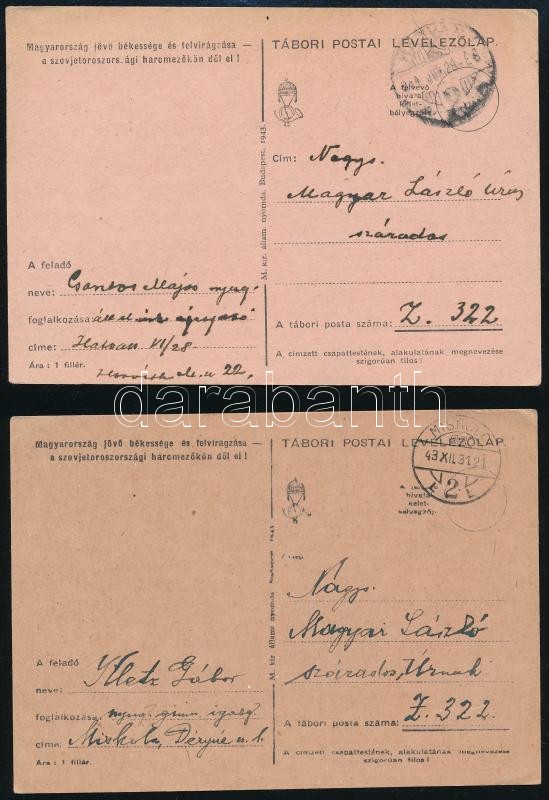 Magyarország jövő békessége és felvirágzása —
a szovjetoroszországi harcmezőkön dől el !
TÁBORI POSTAI LEVELEZŐLAP.
A felvevő
hivatal
kelet-
bélyegzője
M. kir. állam. nyomda. Budapest, 1943.
Cím: Nagys.
Magyar László Úrnak
százados
A feladó
neve: Csontos Majos nyug.
foglalkozása: áll. igazgató
címe: Hatvan VI/28
Ára : 1 fillér.
u 22.
A tábori posta száma: Z. 322
A címzett csapattestének, alakulatának megnevezése
szigorúan tilos !
darabanth
Magyarország jövő békessége és felvirágzása —
a szovjetoroszországi harcmezőkön dől el !
TÁBORI POSTAI LEVELEZŐLAP.
MISKOLC
43 XII.31.21
2
hivatal
kelet-
M. kir. állami nyomda
Nagys.
Magyar László
százados Úrnak
A feladó
neve: Kletz Gábor
foglalkozása: nyug. gimn. igazg.
címe: Miskolc, Deryné u. 1.
Ára : 1 fillér.
A tábori posta száma: Z. 322
A címzett csapattestének, alakulatának megnevezése
szigorúan tilos !